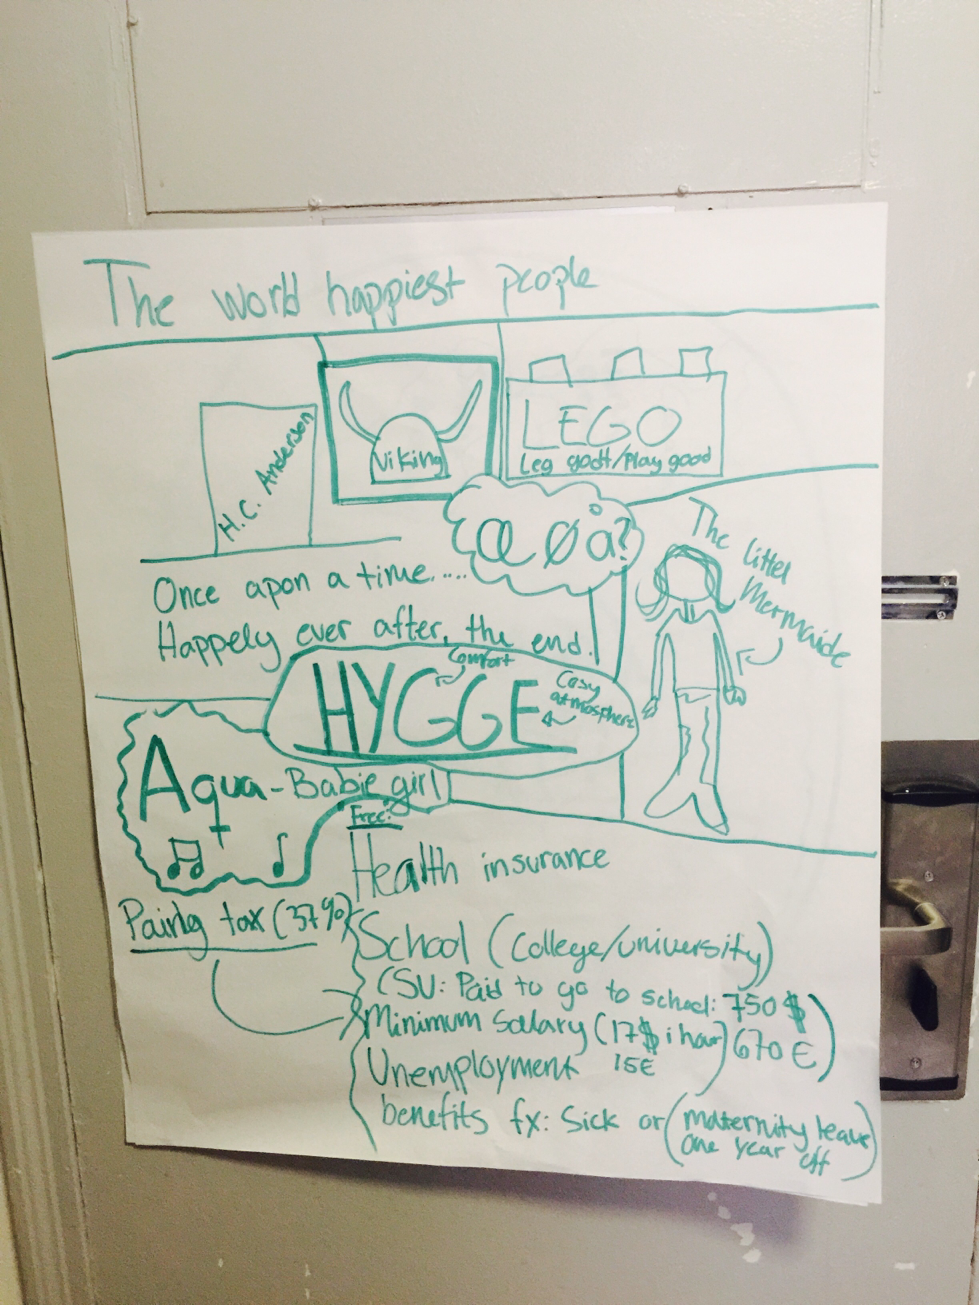 The world happiest people
H.C. Anderson
Viking
LEGO
Leg godt/Play good
æ ø å?
The littel
Mermaide
Once apon a time.....
Happely ever after, the end.
HYGGE
Comfort
Cosy
atmosphere
Aqua - Babie girl
Free:
Health insurance
Paing tax (37%)
School (College/university)
(SU: Paid to go to school: 750 $
670 €)
Minimum salary (17$ i hour)
15€
Unemployment
benefits fx: Sick or (maternity leave
one year off)